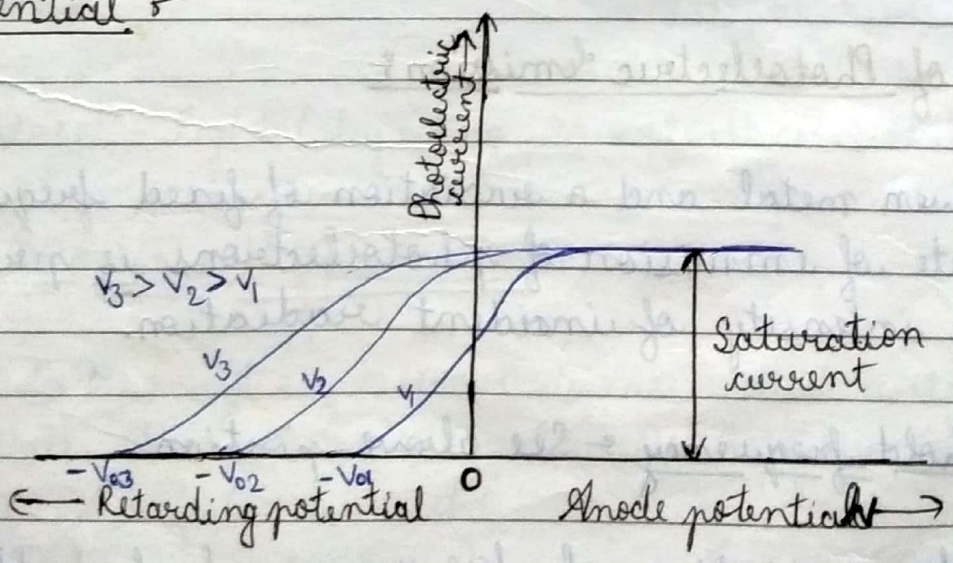 ential :-
Photoelectric
current →
V3 > V2 > V1
V3
V2
V1
Saturation
current
-V03
-V02
-V01
O
← Retarding potential
Anode potential →